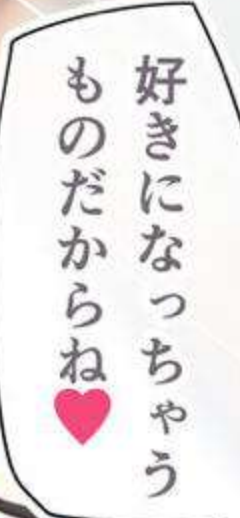 好きになっちゃう
ものだからね♥